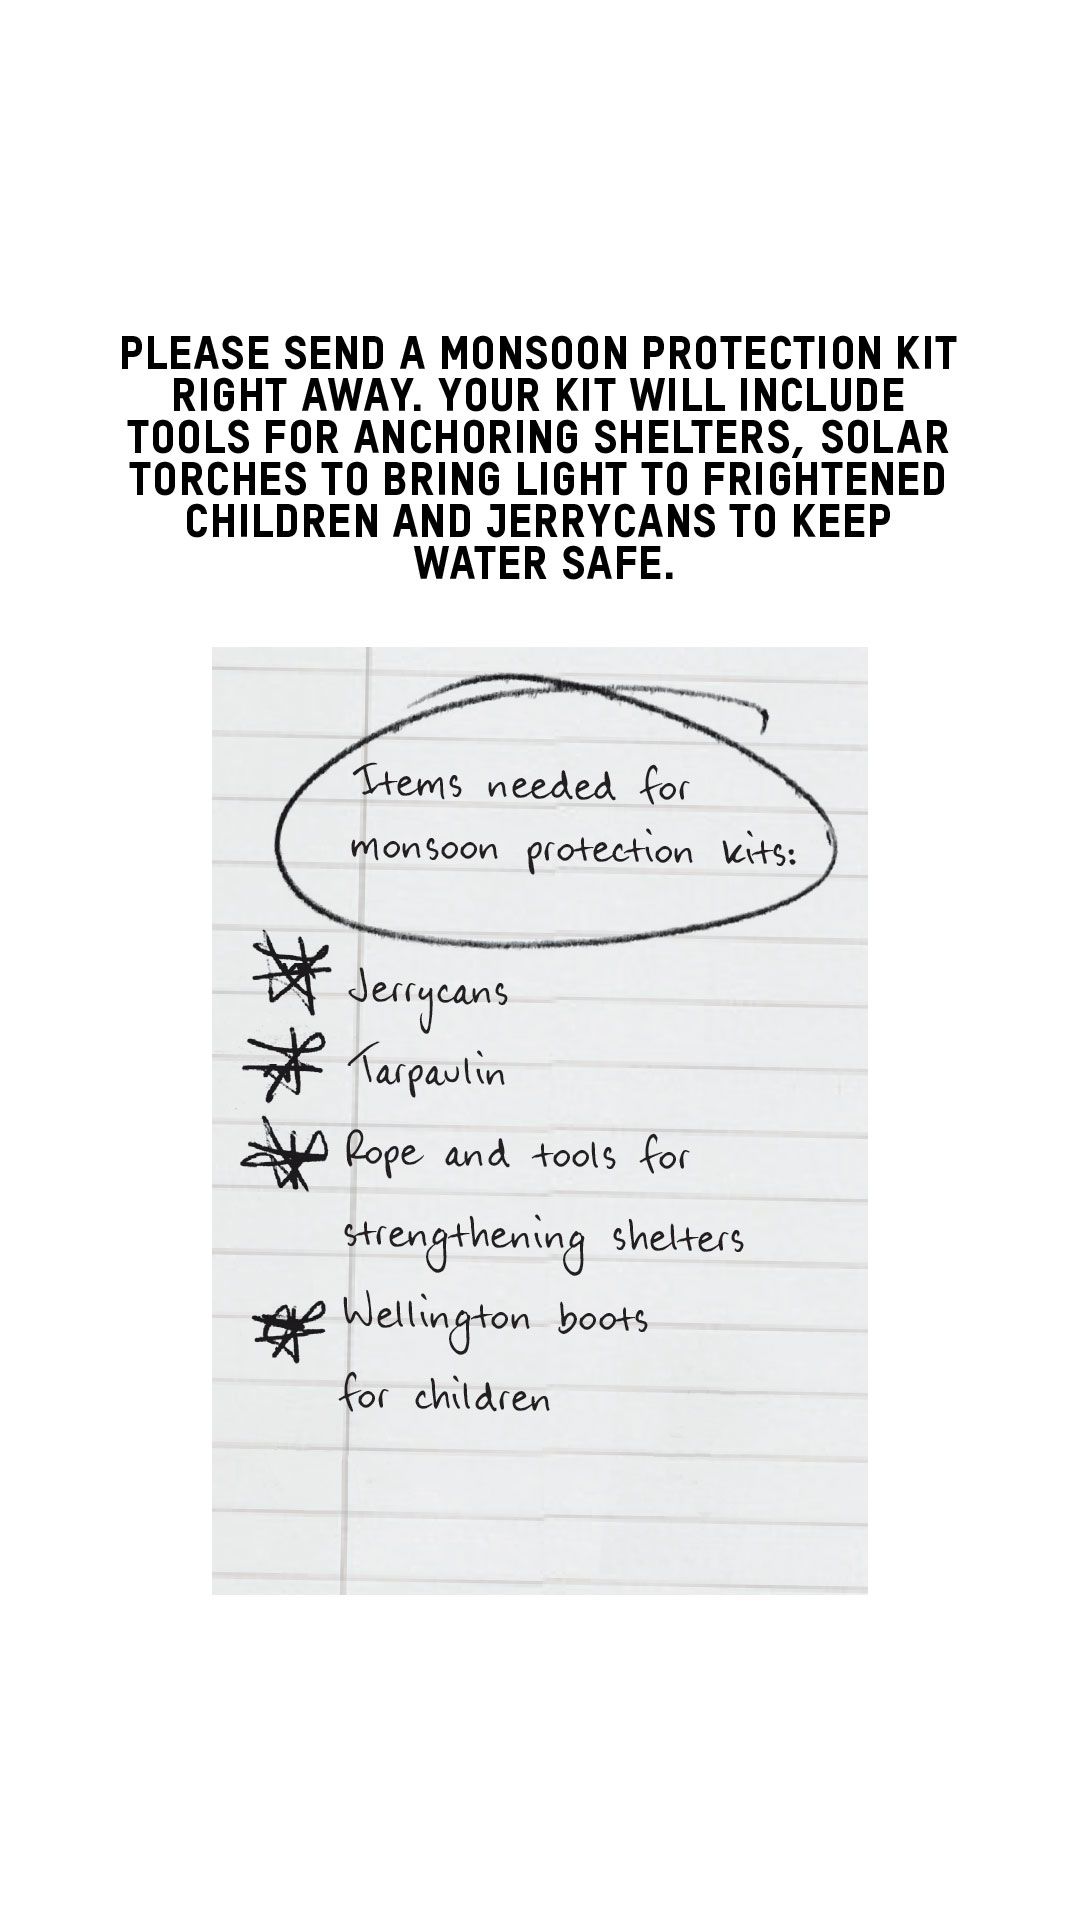 PLEASE SEND A MONSOON PROTECTION KIT
RIGHT AWAY. YOUR KIT WILL INCLUDE
TOOLS FOR ANCHORING SHELTERS, SOLAR
TORCHES TO BRING LIGHT TO FRIGHTENED
CHILDREN AND JERRYCANS TO KEEP
WATER SAFE.
Items needed for
monsoon protection kits:
Jerrycans
Tarpaulin
Rope and tools for
strengthening shelters
Wellington boots
for children